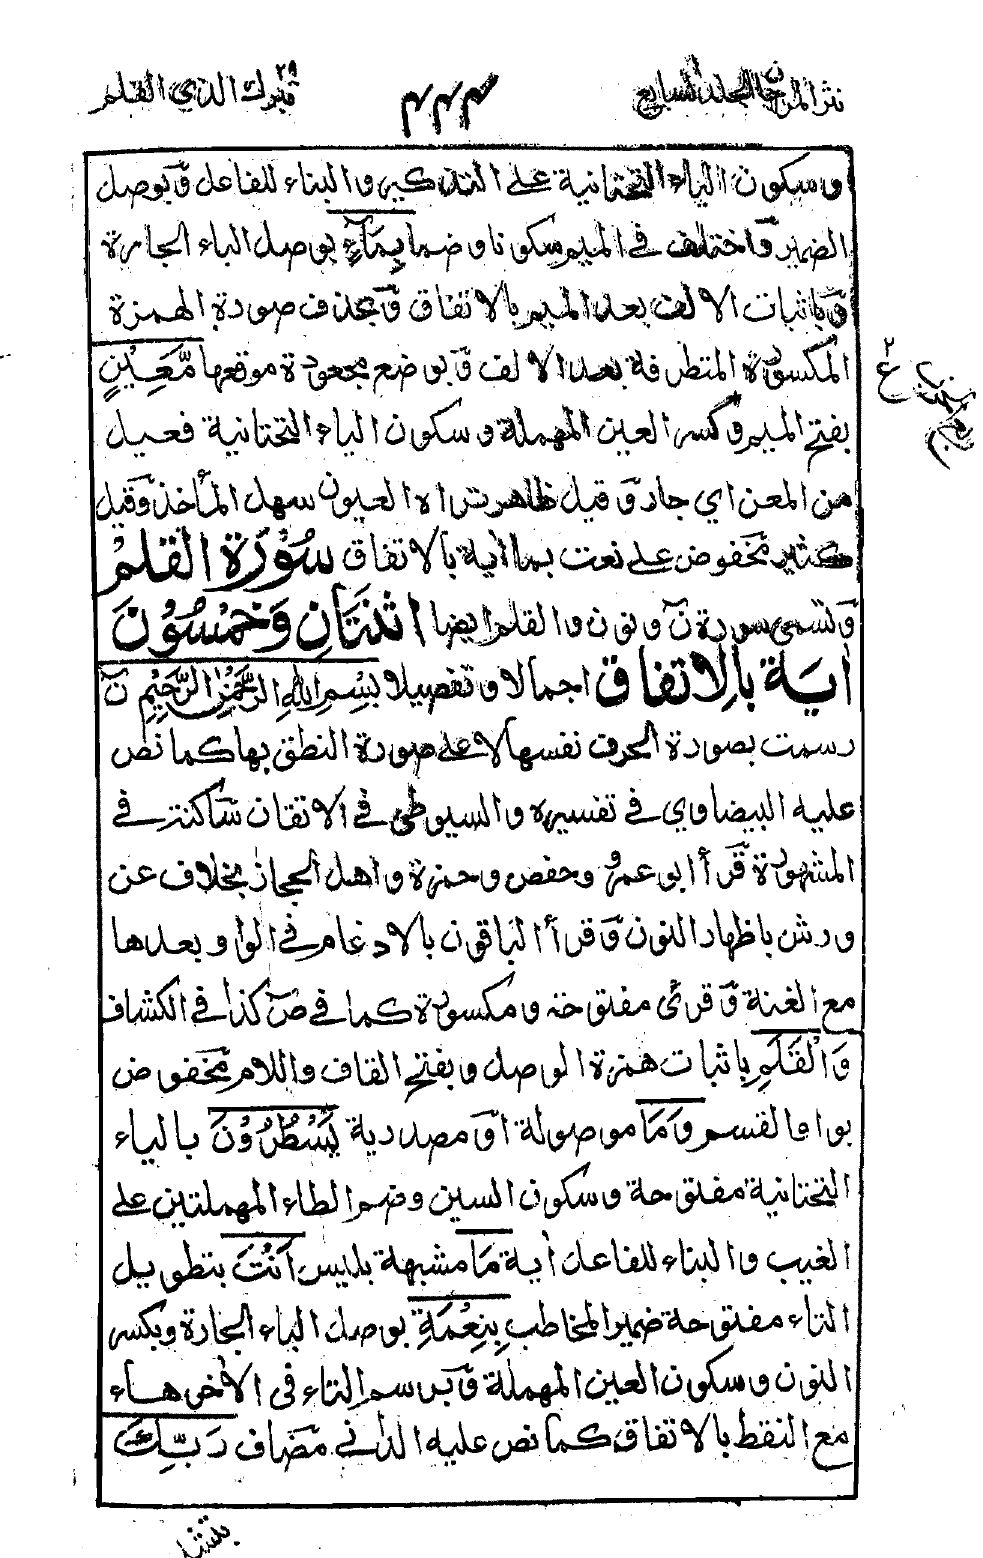 نثر المرجان المجلد السابع
٤٤٤
تبٰرك الذي ٢٩ القلم
وسكون الياء التحتانية على التذكير والبناء للفاعل وَبوصل
الضمير وَاختلف في الميم سكونا وضما بِمَآءٍ بوصل الباء الجارة
وَباثبات الالف بعد الميم بالاتفاق وَبحذف صورة الهمزة
المكسورة المتطرفة بعد الالف وَبوضع مجعودة موقعها مَّعِيْنٍ
بفتح الميم وكسر العين المهملة وسكون الياء التحتانية فعيل
من المعن اي جار وَقيل ظاهر تراه العيون سهل المأخذ وَقيل
كثير مخفوض على نعت بماء اٰية بالاتفاق سُوْرَةُ القلمْ
وَتسمى سورة نٓ ونون والقلم ايضا اثْنَتَانِ وَخَمْسُوْنَ
اٰيَة بالِاتفاق اجمالا وتفصيلا بِسْمِ اللهِ الرَّحْمٰنِ الرَّحِيْمِ نٓ
رسمت بصورة الحرف نفسها لا على صورة النطق بها كما نص
عليه البيضاوي في تفسيره والسيوطي في الاتقان سَاكنة في
المشهورة قَرأ ابو عمرو وحفص وحمزة واهل الحجاز بخلاف عن
ورش باظهار النون وَقرأ الباقون بالادغام في الواو بعدها
مع الغنة وَقرئ مفتوحة ومكسورة كما في صٓ كذا في الكشاف
وَالْقَلَمِ باثبات همزة الوصل وبفتح القاف واللام مخفوض
بواو القسم وَمَا موصولة اوَ مصدرية يَسْطُرُوْنَ بالياء
التحتانية مفتوحة وسكون السين وضم الطاء المهملتين على
الغيب والبناء للفاعل اٰية مَا مشبهة بليس اَنْتَ بتطويل
التاء مفتوحة ضمير المخاطب بِنِعْمَةِ بوصل الباء الجارة وبكسر
النون وسكون العين المهملة وَبرسم التاء في الاٰخر هاء
مع النقط بالاتفاق كما نص عليه الداني مضاف رَبِّكَ